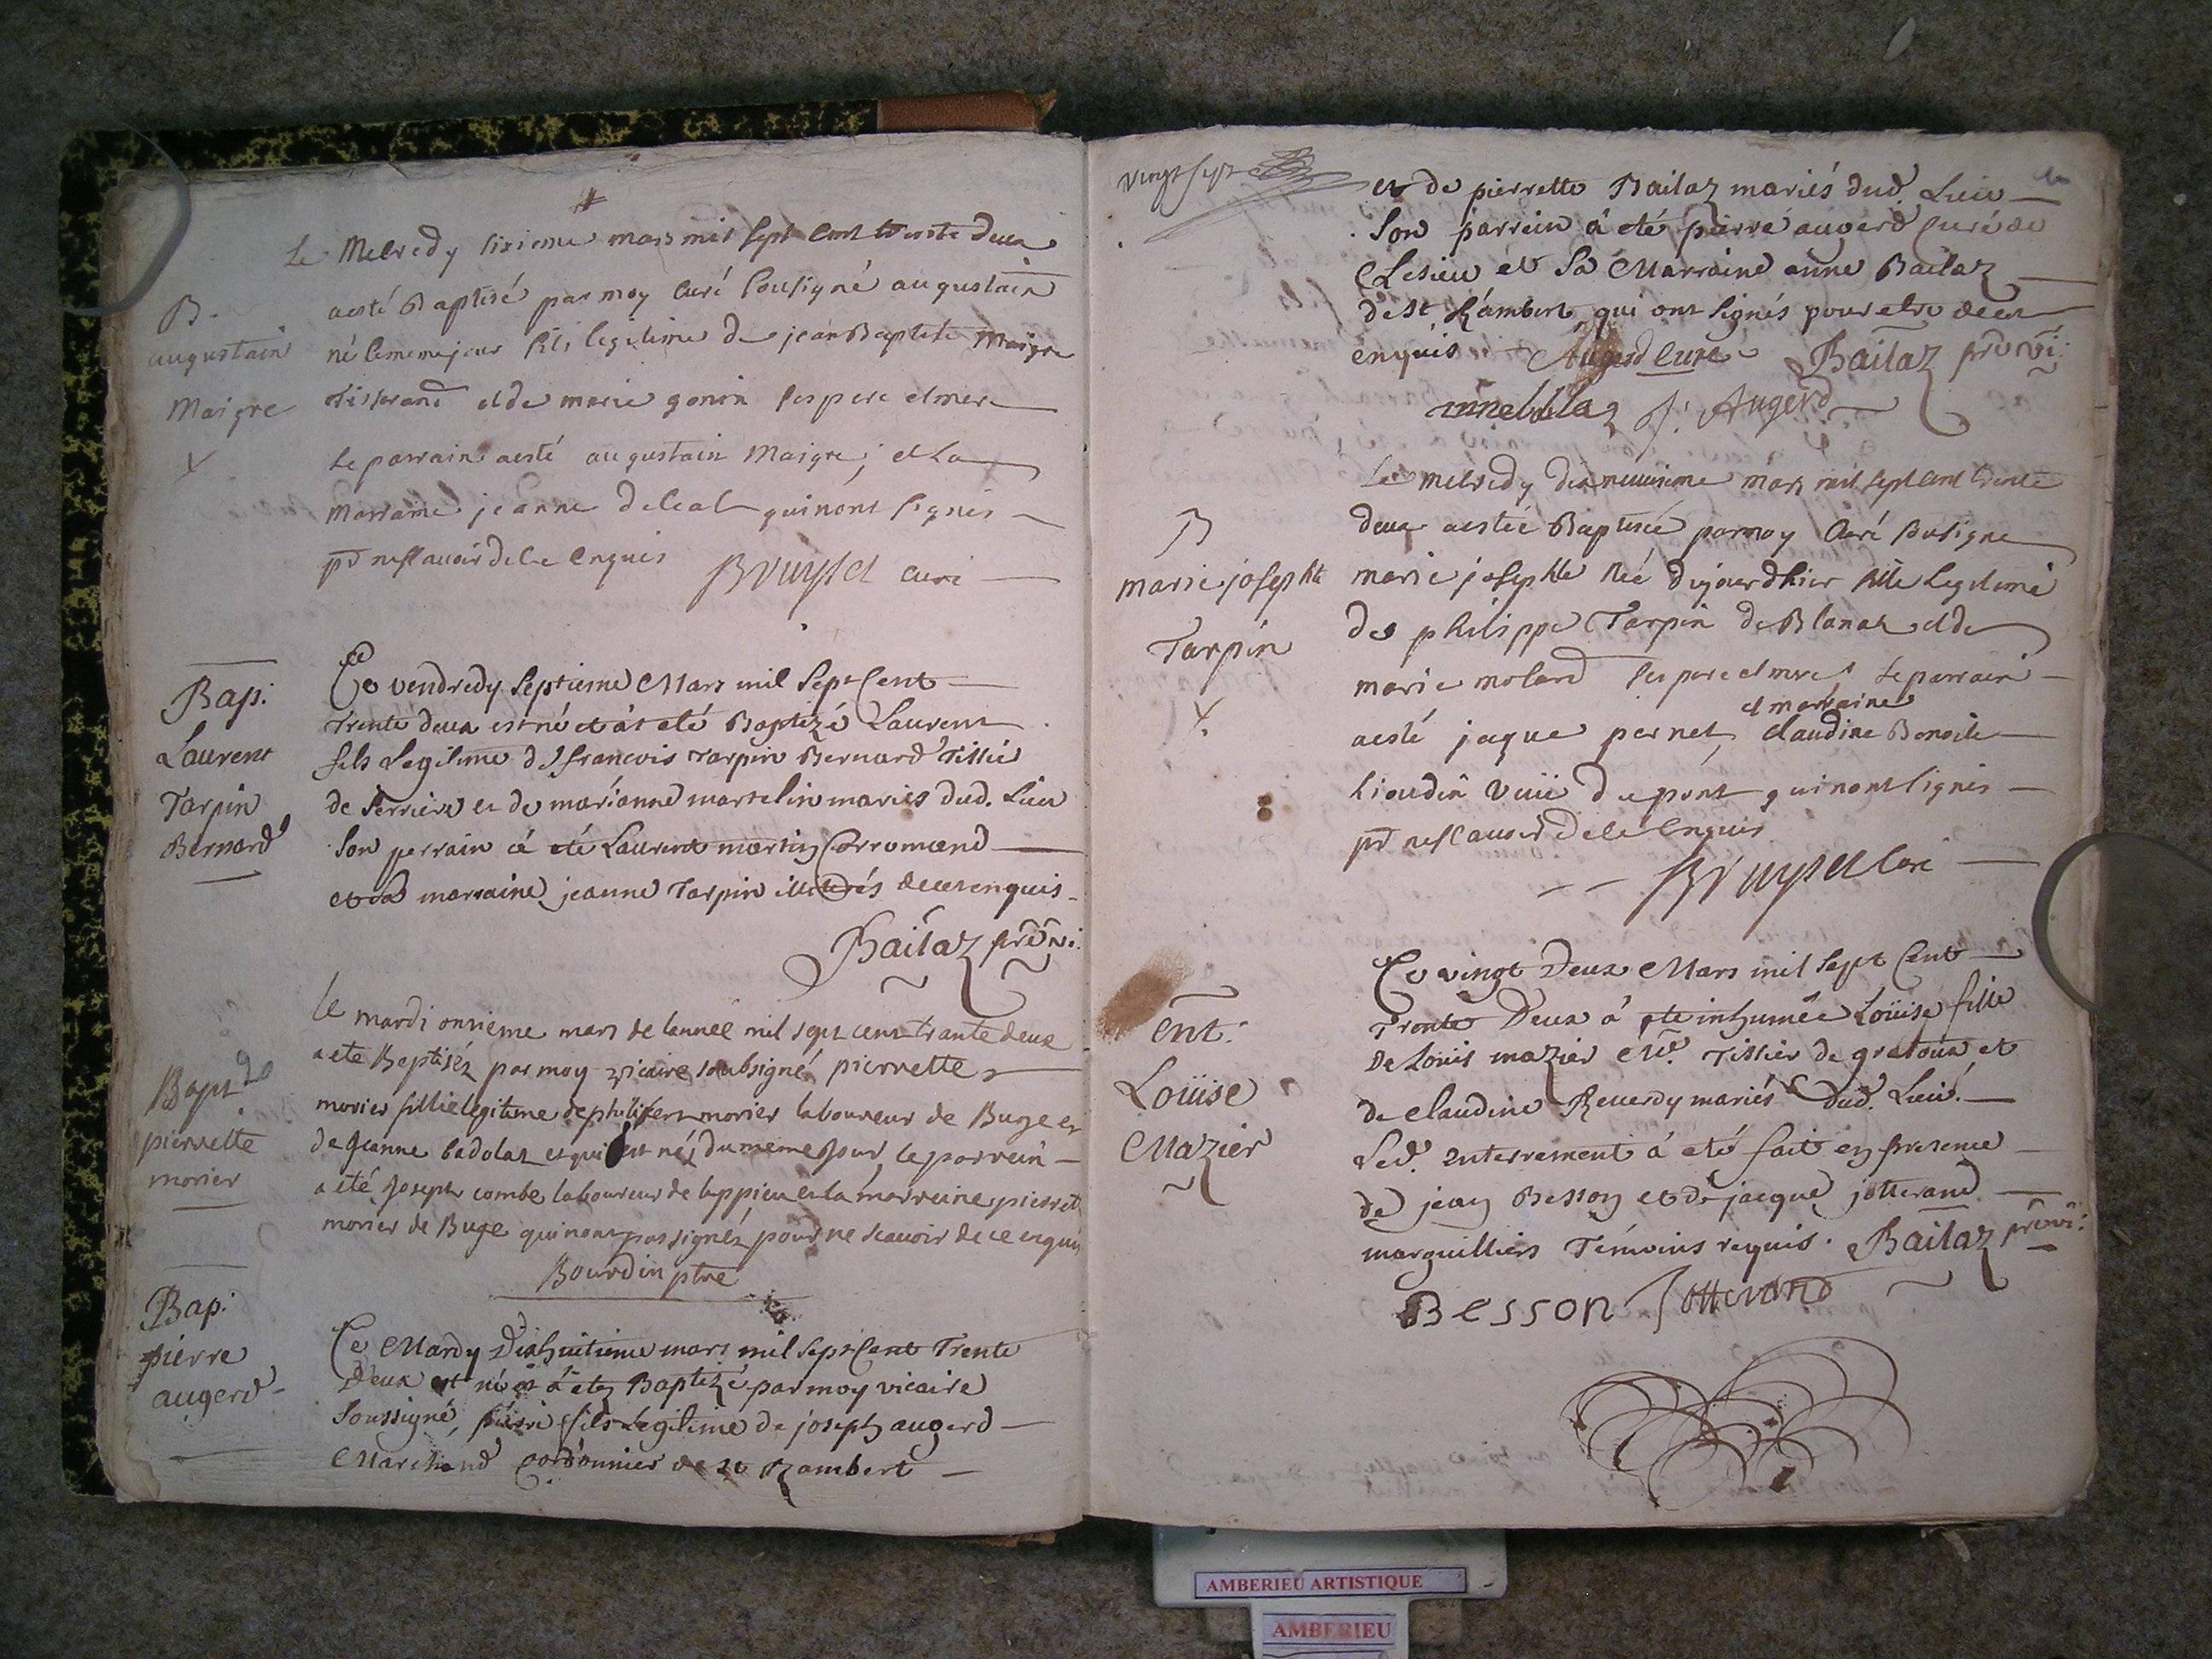 B.
augustain
Maigre
Le Mecredy sixieme mars mil sept cent trente deux
a esté Baptisé par moy curé sousigné augustain
né le meme jour fils legitime de jean Baptiste Maigre
tisserand et de marie gonin ses pere et mere
le parrain a esté augustain Maigre, et la
marraine jeanne deleal qui nont signés
pr ne sçavoir de ce enquis Bruyset curé
Bap.
Laurent
Tarpin
Bernard
Ce vendredy septieme Mars mil sept Cent
Trente deux est né et at eté Baptizé Laurent
fils Legitime de francois Tarpin Bernard Tissier
de Serriere et de marianne martelin mariés dud. Lieu
Son parrain á eté Laurent martin
et sa marraine jeanne Tarpin illiterés de ce enquis
Bailaz
Bapt de
pierrette
morier
le mardi onsieme mars de lannee mil sept cent trante deux
a ete Baptiséz par moy vicaire soubsigné pierrette
morier fillie legitime de philibert morier laboureur de Buge et
de jeanne badolaz et qui est néé du meme jour le parrein
a eté joseph combe laboureur de leppieu et la marreine pierret
morier de Buge qui nont pas signéz pour ne scavoir de ce enquis
Bourdin ptre
Bap.
pierre
augerd
Ce Mardy Dixhuitieme mars mil sept Cent Trente
Deux est né et á etez Baptizé par moy vicaire
Soussigné, pierre fils Legitime de joseph augerd
Marchand Cordonnier de St Rambert
vingt sept
et de pierrette Bailaz mariés dud. Lieu
Son parrein á eté pierre augerd Curé de
Lesieu et Sa Marraine anne Bailaz
de St Rambert qui ont signés pour etre de ce
enquis Augerd Curé Bailaz
J. Augerd
B
marie josephte
Tarpin
Le mecredy dix neuvieme mars mil sept cent trente
deux a estéé Baptiséé par moy Curé sousigne
marie josephte néé dujourdhier fille legitime
de philippe Tarpin de Blanaz et de
marie molard ses pere et mere le parrain
et marraine
a esté jaque pernet claudine Benoite
hioudin du pont qui nont signés
pr ne scavoir de ce enquis
Bruyset Curé
Ent.
Loüise
Mazier
Ce vingt Deux Mars mil Sept Cent
Trente Deux á eté inhumée Loüise fille
De Loüis mazier Tissier de gratoux et
de claudine Reverdy mariés dud. Lieu.
Led. enterrement á eté fait en presence
de jean Besson et de jacque jotterand
marguilliers Témoins requis. Bailaz
Besson Jotterand
AMBERIEU ARTISTIQUE
AMBERIEU